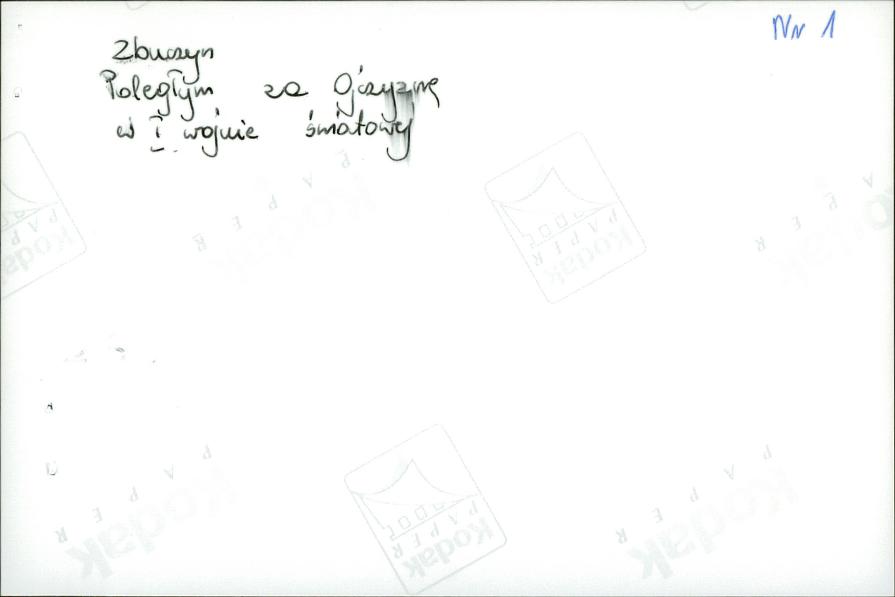 Nr 1
Zbuczyn
Poległym za Ojczyznę
w I wojnie światowej
Kodak
PAPER
Kodak
PAPER
Kodak
PAPER
Kodak
PAPER
Kodak
PAPER
Kodak
PAPER
Kodak
PAPER